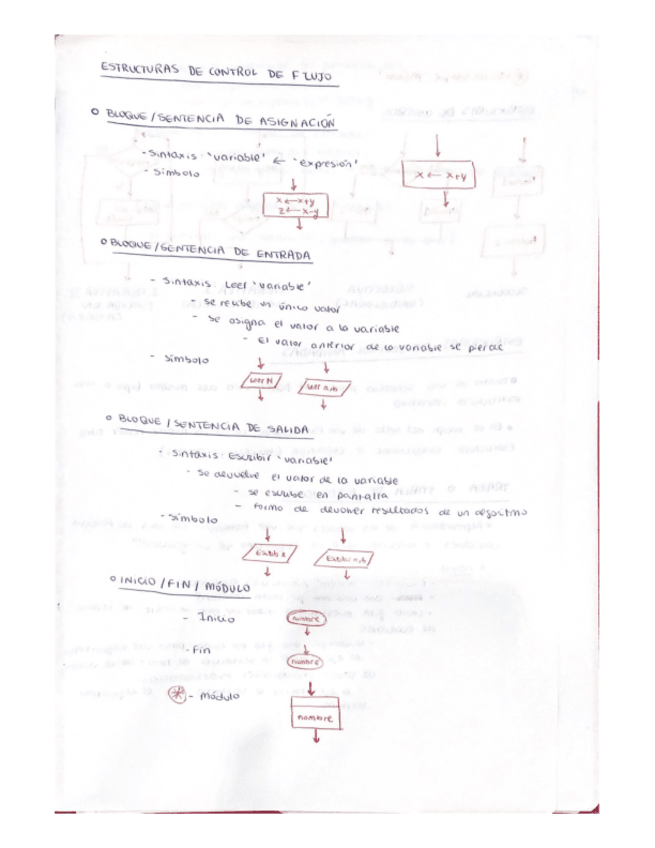 ESTRUCTURAS DE CONTROL DE FLUJO
o BLOQUE/SENTENCIA DE ASIGNACIÓN
- Sintaxis: 'variable' ← 'expresión'
- Símbolo
x ← x+y
z ← x-y
x ← x+y
o BLOQUE/SENTENCIA DE ENTRADA
- Sintaxis: Leer 'variable'
- se recibe un único valor
- se asigna el valor a la variable
- El valor anterior de la variable se pierde
- Símbolo
Leer N
Leer a,b
o BLOQUE/SENTENCIA DE SALIDA
- Sintaxis: Escribir 'variable'
- se devuelve el valor de la variable
- se escribe en pantalla
- forma de devolver resultados de un algoritmo
- Símbolo
o INICIO/FIN/MÓDULO
- Inicio
nombre
- Fin
nombre
* - módulo
nombre